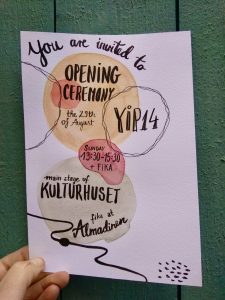 You are invited to
OPENING
CEREMONY
the 29th
of August
YIP14
SUNDAY
13:30-15:30
+ FIKA
main stage of
KULTURHUSET
fika at
Almadinän